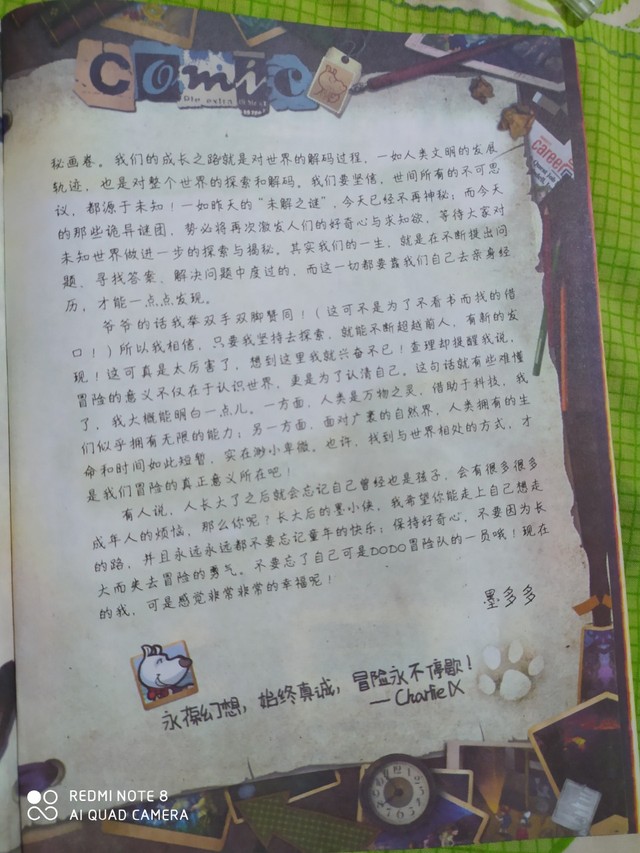 Comic
Die extra
career
秘画卷。我们的成长之路就是对世界的解码过程，一如人类文明的发展
轨迹，也是对整个世界的探索和解码。我们要坚信，世间所有的不可思
议，都源于未知！一如昨天的“未解之谜”，今天已经不再神秘；而今天
的那些诡异谜团，势必将再次激发人们的好奇心与求知欲，等待大家对
未知世界做进一步的探索与揭秘。其实我们的一生，就是在不断提出问
题、寻找答案、解决问题中度过的，而这一切都要靠我们自己去亲身经
历，才能一点点发现。
爷爷的话我举双手双脚赞同！（这可不是为了不看书而找的借
口！）所以我相信，只要我坚持去探索，就能不断超越前人，有新的发
现！这可真是太厉害了，想到这里我就兴奋不已！查理却提醒我说，
冒险的意义不仅在于认识世界，更是为了认清自己。这句话就有些难懂
了，我大概能明白一点儿。一方面，人类是万物之灵，借助于科技，我
们似乎拥有无限的能力；另一方面，面对广袤的自然界，人类拥有的生
命和时间如此短暂，实在渺小卑微。也许，找到与世界相处的方式，才
是我们冒险的真正意义所在吧！
有人说，人长大了之后就会忘记自己曾经也是孩子，会有很多很多
成年人的烦恼，那么你呢？长大后的墨小侠，我希望你能走上自己想走
的路，并且永远永远都不要忘记童年的快乐；保持好奇心，不要因为长
大而失去冒险的勇气。不要忘了自己可是DODO冒险队的一员哦！现在
的我，可是感觉非常非常的幸福呢！
墨多多
永葆幻想，始终真诚，冒险永不停歇！
—CharlieⅨ
REDMI NOTE 8
AI QUAD CAMERA